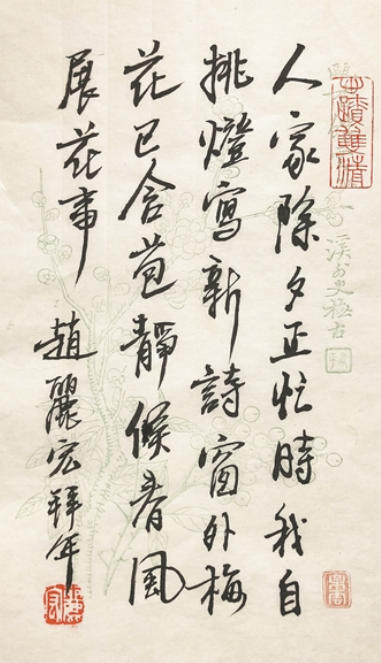 人家除夕正忙時我自
挑燈寫新詩窗外梅
花已含苞靜候春風
展花事
趙麗宏拜年